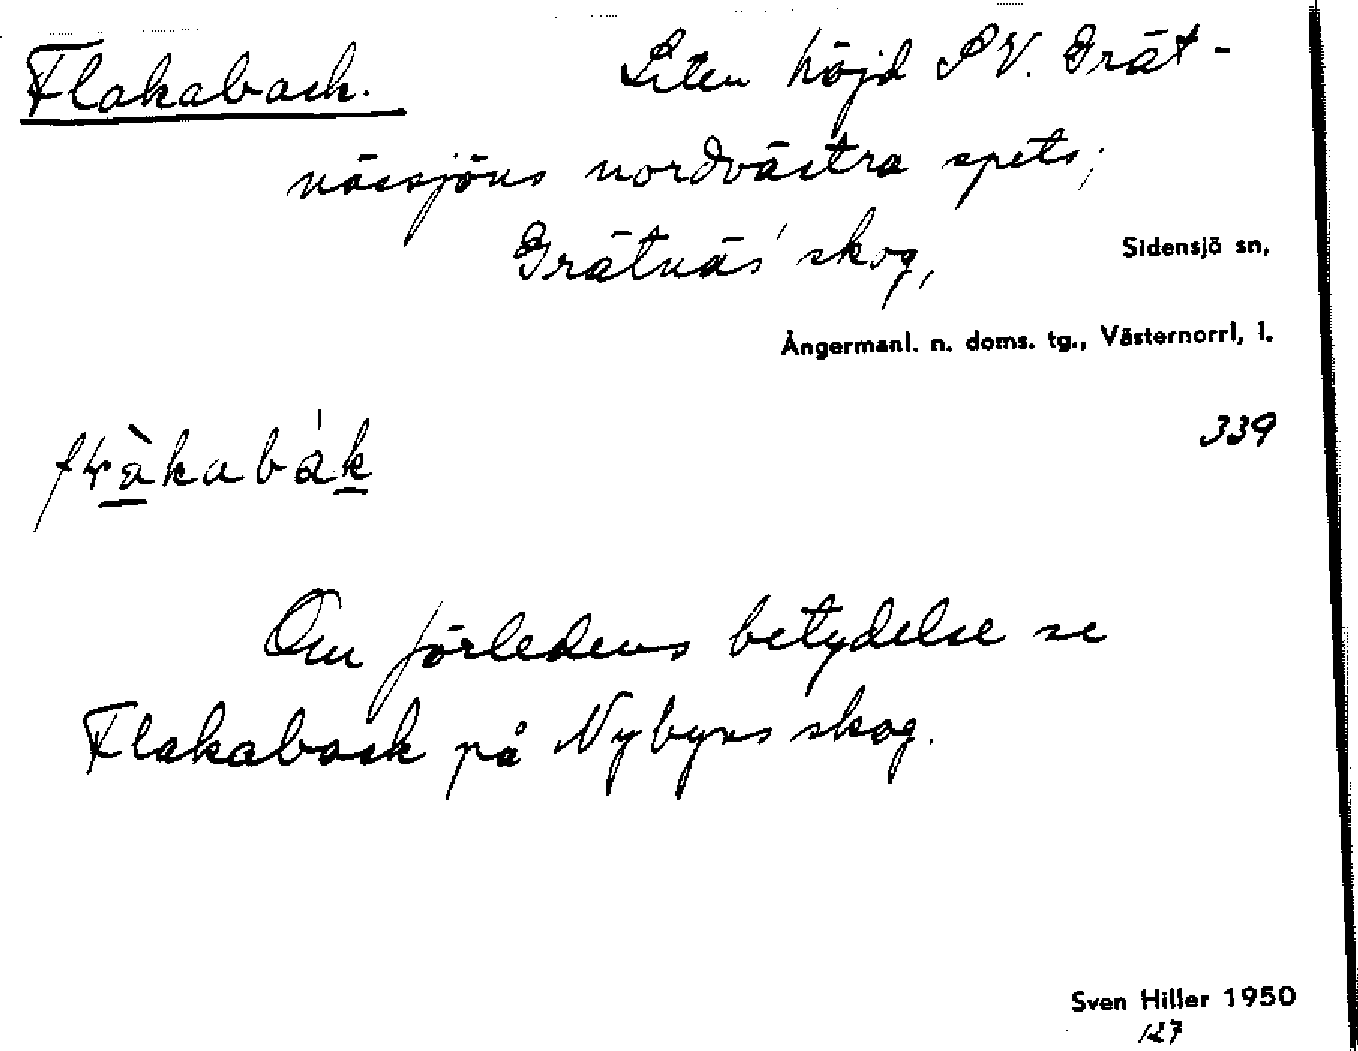 Flakaback. Liten höjd SV. Grät-
näsjöns nordvästra spets;
Grätnäs' skog, Sidensjö sn,
Ångermanl. n. doms. tg., Västernorrl, l.
339
Om förledens betydelse se
Flakaback på Nybyns skog.
Sven Hiller 1950
127